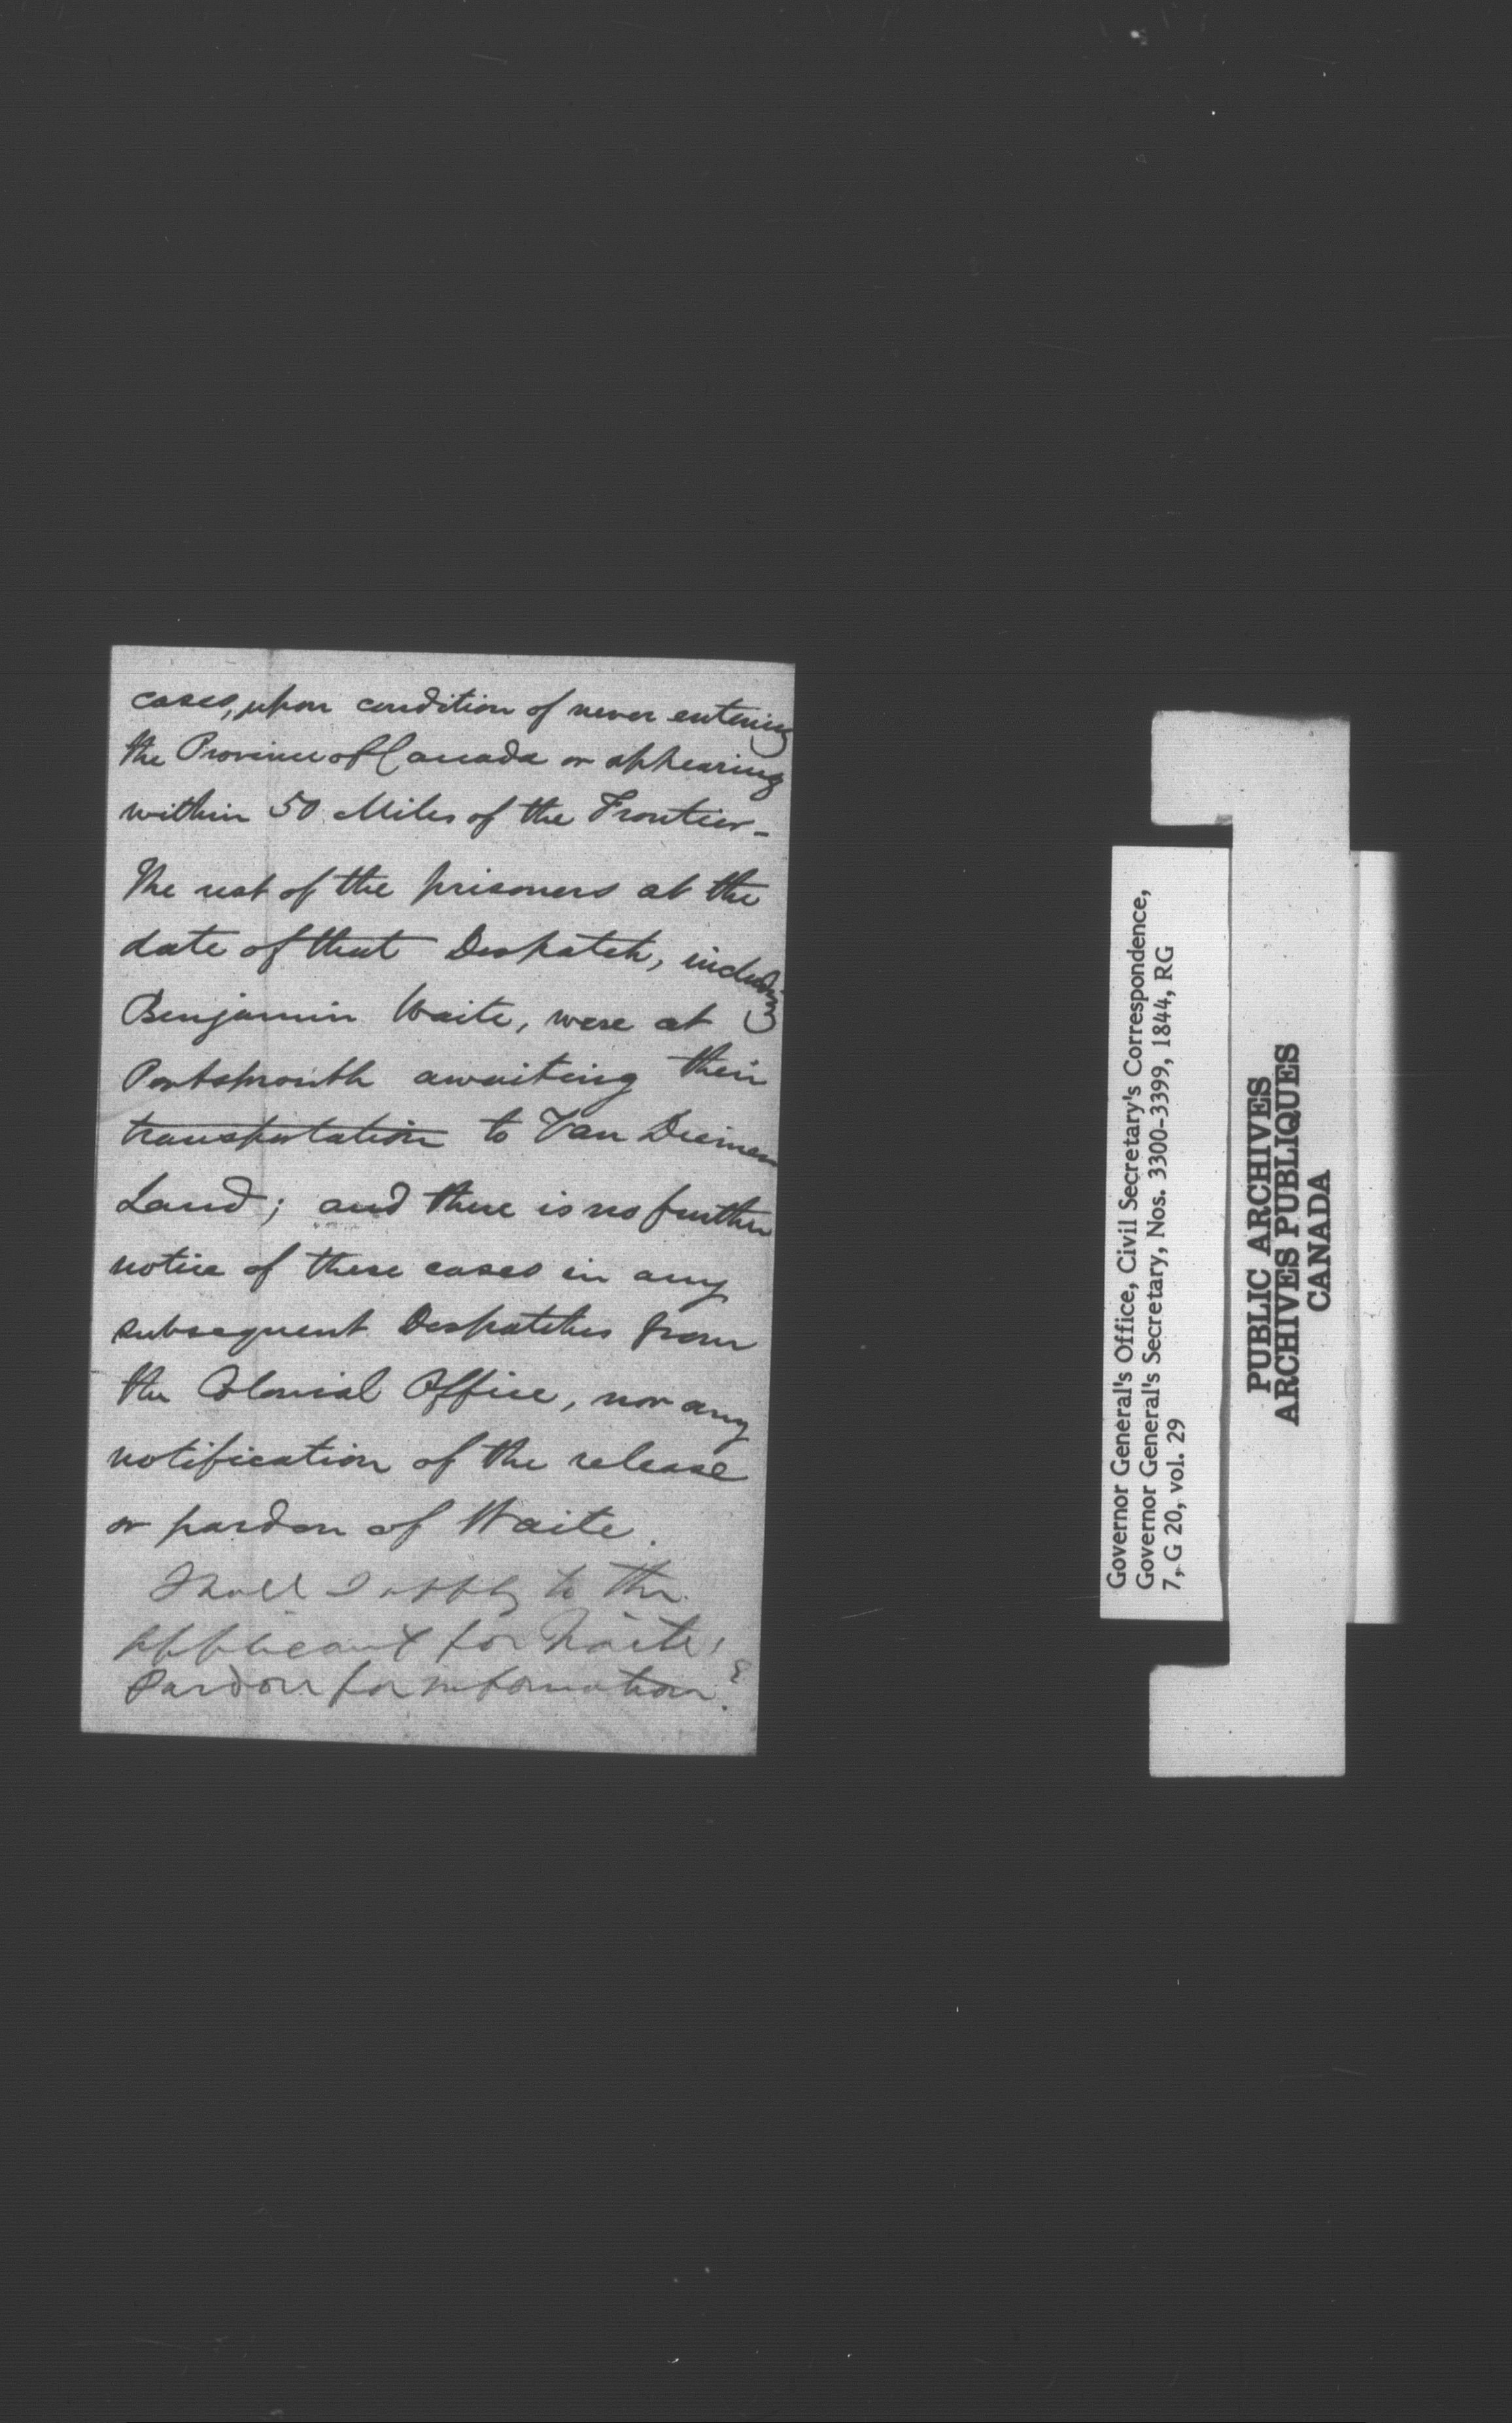 cases, upon condition of never entering
the Province of Canada or appearing
within 50 Miles of the Frontier -
The rest of the prisoners at the
date of that Despatch, including
Benjamin Waite, were at
Portsmouth awaiting their
transportation to Van Diemen
Land; and there is no further
notice of these cases in any
subsequent Despatches from
the Colonial Office, nor any
notification of the release
or pardon of Waite.
Shall I apply to the
applicant for Waite's
Pardon for information?
Governor General's Office, Civil Secretary's Correspondence,
Governor General's Secretary, Nos. 3300-3399, 1844, RG
7, G 20, vol. 29
PUBLIC ARCHIVES
ARCHIVES PUBLIQUES
CANADA